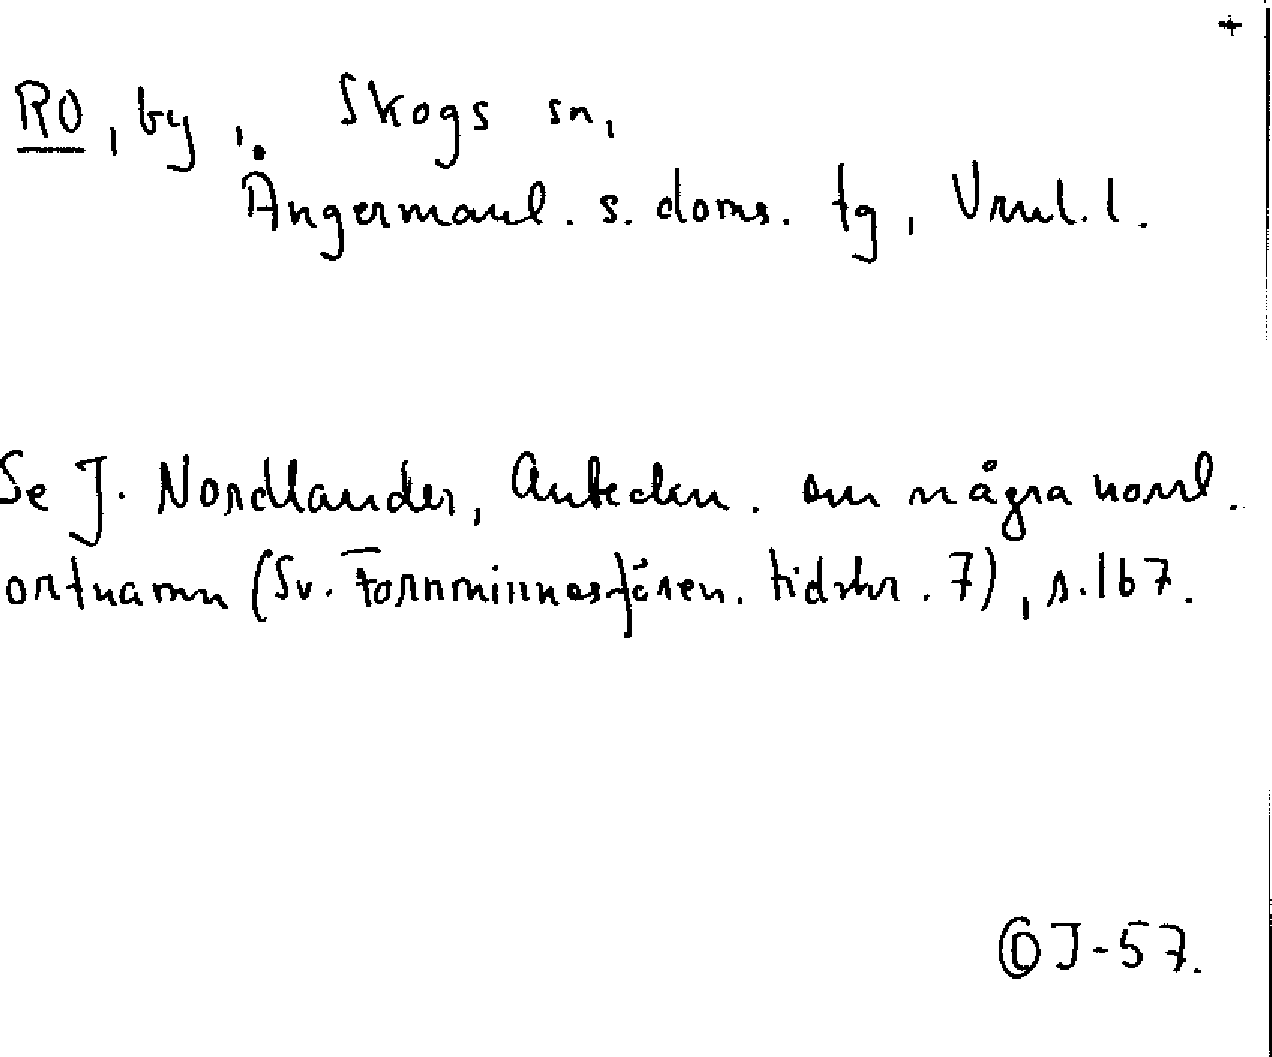 +
RO, by, Skogs sn,
Ångermanl. s. doms. tg, Vrnl. l.
Se J. Nordlander, Anteckn. om några norrl.
ortnamn (Sv. Fornminnesfören. tidskr. 7), s. 167.
J-57.